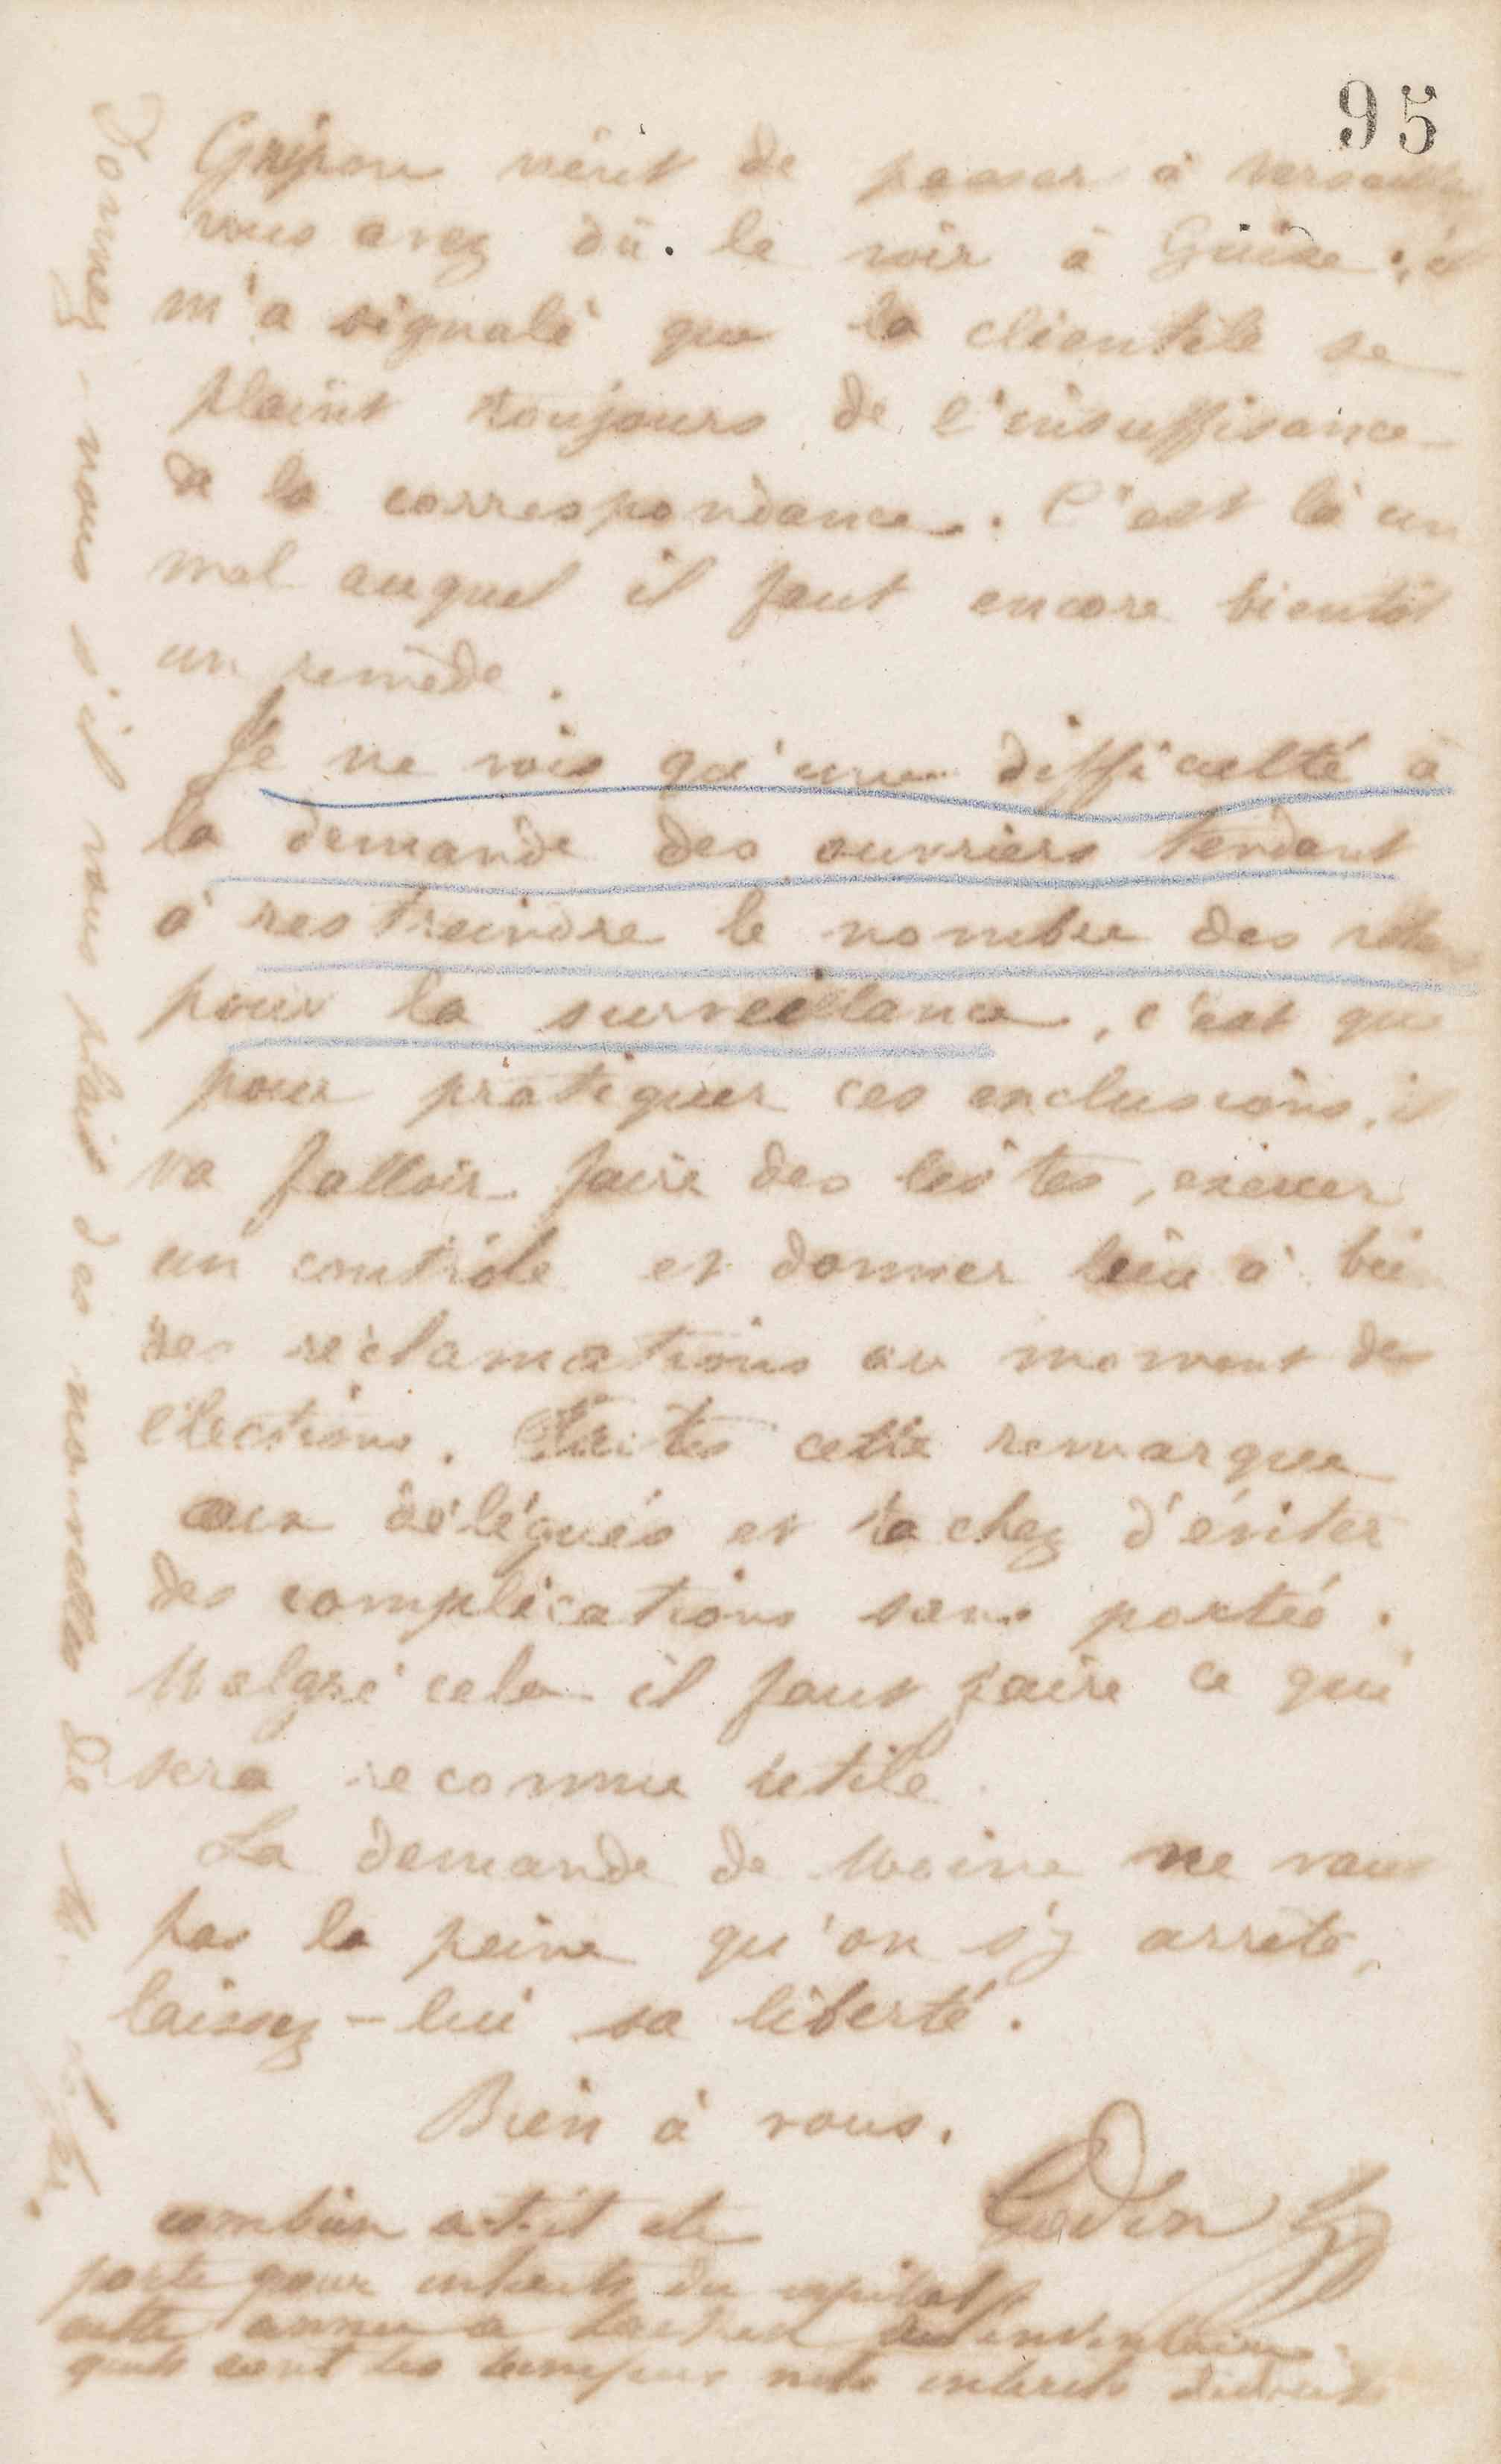 95
Gripon vient de passer à Versailles
vous avez dû le voir à Guise ; il
m'a signalé que la clientèle se
plaint toujours de l'insuffisance
de la correspondance. C'est là un
mal auquel il faut encore bientôt
un remède.
Je ne vois qu'une difficulté à
la demande des ouvriers tendant
à restreindre le nombre des
pour la surveillance, c'est que
pour pratiquer ces exclusions, il
va falloir faire des listes, exercer
un contrôle et donner lieu à bien
des réclamations au moment des
élections. Faites cette remarque
aux délégués et tachez d'éviter
des complications sans portée.
Malgré cela il faut faire ce qui
sera reconnu utile.
La demande de Moine ne vaut
pas la peine qu'on s'y arrête,
laissez-lui sa liberté.
Bien à vous.
Godin
combien a-t-il été
porté pour intérêts du capital
cette année a l'inventaire
quels sont les nets intérêts déduits
Donnez-nous s'il vous plait des nouvelles de M.